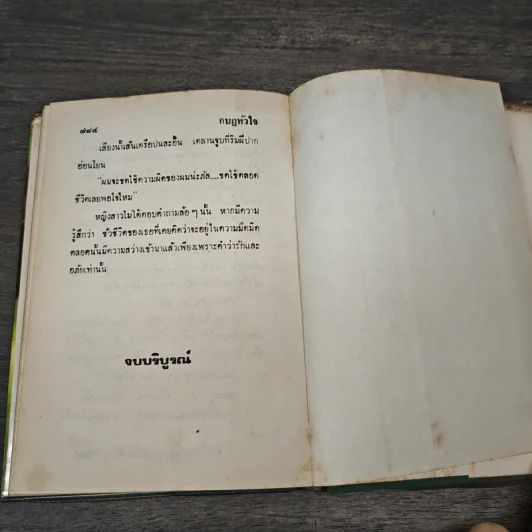 ๗๘๔ กบฏหัวใจ
เสียงนั้นสั่นเครือปนสะอื้น เคลานจูบที่ริมฝีปาก
อ่อนโยน
“ผมจะชดใช้ความผิดของผมน่ะภัส....ชดใช้ตลอด
ชีวิตเลยพอใจไหม”
หญิงสาวไม่ได้ตอบคำถามล้อ ๆ นั้น หากมีความ
รู้สึกว่า ชั่วชีวิตของเธอที่เคยคิดว่าจะอยู่ในความมืดมิด
ตลอดนั้นมีความสว่างเข้ามาแล้วเพียงเพราะคำว่ารักและ
อภัยเท่านั้น
จบบริบูรณ์